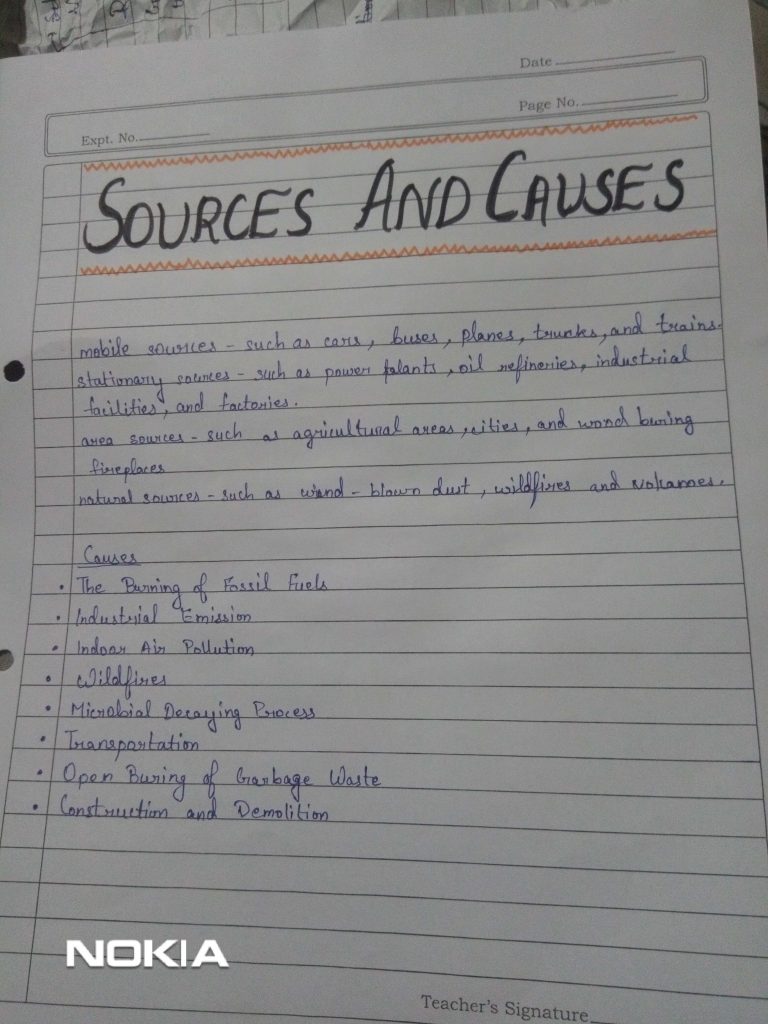 Date
Page No.
Expt. No.
SOURCES AND CAUSES
mobile sources - such as cars, buses, planes, trunks, and trains.
stationary sources - such as power palants, oil refineries, industrial
facilities, and factories.
area sources - such as agricultural areas, cities, and wood buring
fireplaces
natural sources - such as wind - blown dust, wildfires and volcanoes.
Causes
• The Burning of Fossil Fuels
• Industrial Emission
• Indoor Air Pollution
• Wildfires
• Microbial Decaying Process
• Transportation
• Open Buring of Garbage Waste
• Construction and Demolition
NOKIA
Teacher's Signature